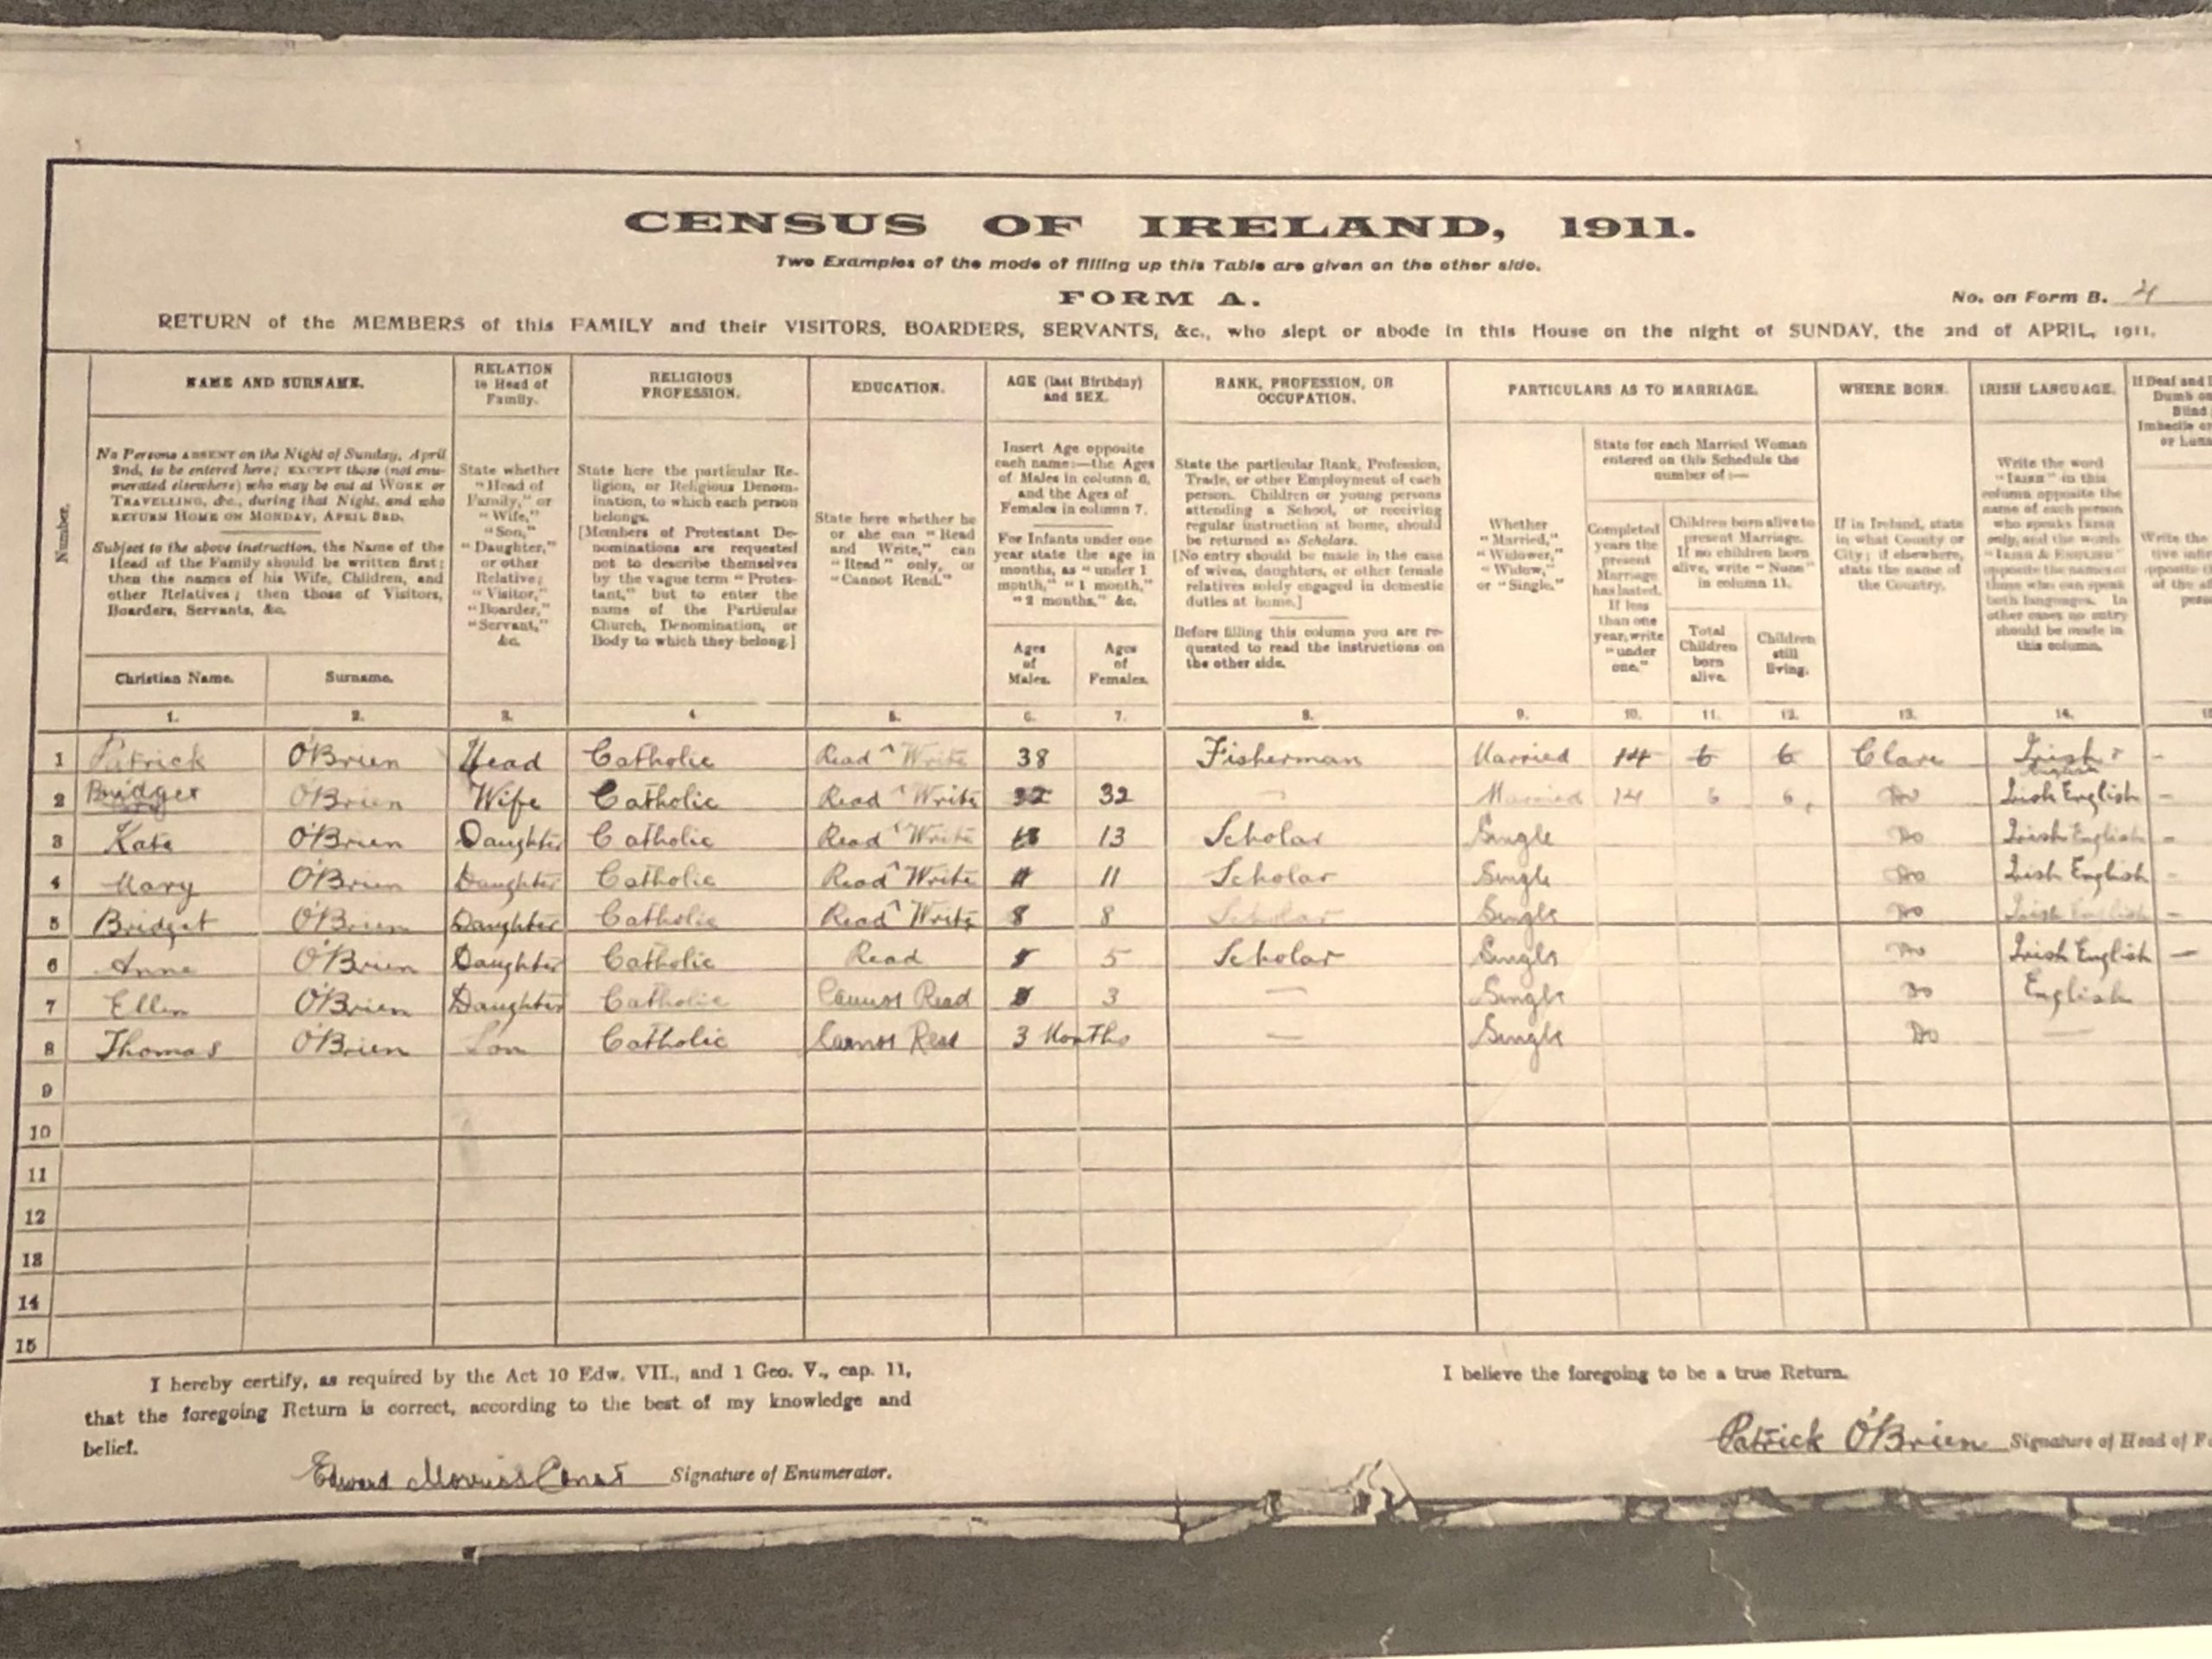 CENSUS OF IRELAND, 1911.
Two Examples of the mode of filling up this Table are given on the other side.
FORM A.
No. on Form B. 4
RETURN of the MEMBERS of this FAMILY and their VISITORS, BOARDERS, SERVANTS, &c., who slept or abode in this House on the night of SUNDAY, the 2nd of APRIL, 1911.
Number.
NAME AND SURNAME.
No Persons ABSENT on the Night of Sunday, April
2nd, to be entered here; EXCEPT those (not enu-
merated elsewhere) who may be out at WORK or
TRAVELLING, &c., during that Night, and who
RETURN HOME ON MONDAY, APRIL 3RD.
Subject to the above instruction, the Name of the
Head of the Family should be written first;
then the names of his Wife, Children, and
other Relatives; then those of Visitors,
Boarders, Servants, &c.
Christian Name.
Surname.
1.
2.
RELATION
to Head of
Family.
State whether
"Head of
Family," or
"Wife,"
"Son,"
"Daughter,"
or other
Relative;
"Visitor,"
"Boarder,"
"Servant,"
&c.
3.
RELIGIOUS
PROFESSION.
State here the particular Re-
ligion, or Religious Denom-
ination, to which each person
belongs.
[Members of Protestant De-
nominations are requested
not to describe themselves
by the vague term "Protes-
tant," but to enter the
name of the Particular
Church, Denomination, or
Body to which they belong.]
4.
EDUCATION.
State here whether he
or she can "Read
and Write," can
"Read" only, or
"Cannot Read."
5.
AGE (last Birthday)
and SEX.
Insert Age opposite
each name:—the Ages
of Males in column 6,
and the Ages of
Females in column 7.
For Infants under one
year state the age in
months, as "under 1
month," "1 month,"
"2 months," &c.
Ages
of
Males.
Ages
of
Females.
6.
7.
RANK, PROFESSION, OR
OCCUPATION.
State the particular Rank, Profession,
Trade, or other Employment of each
person. Children or young persons
attending a School, or receiving
regular instruction at home, should
be returned as Scholars.
[No entry should be made in the case
of wives, daughters, or other female
relatives solely engaged in domestic
duties at home.]
Before filling this column you are re-
quested to read the instructions on
the other side.
8.
PARTICULARS AS TO MARRIAGE.
Whether
"Married,"
"Widower,"
"Widow,"
or "Single."
9.
State for each Married Woman
entered on this Schedule the
number of:—
Completed
years the
present
Marriage
has lasted.
If less
than one
year, write
"under
one."
10.
Children born alive to
present Marriage.
If no children born
alive, write "None"
in column 11.
Total
Children
born
alive.
11.
Children
still
living.
12.
WHERE BORN.
If in Ireland, state
in what County or
City; if elsewhere,
state the name of
the Country.
13.
IRISH LANGUAGE.
Write the word
"IRISH" in this
column opposite the
name of each person
who speaks IRISH
only, and the words
"IRISH & ENGLISH"
opposite the names of
those who can speak
both languages. In
other cases no entry
should be made in
this column.
14.
If Deaf and
Dumb
Blind
Imbecile or
or
Write the
1 Patrick O'Brien Head Catholic Read & Write 38 Fisherman Married 14 6 6 Clare Irish & English –
2 Bridget O'Brien Wife Catholic Read & Write 32 32 — Married 14 6 6 Do Irish English –
3 Kate O'Brien Daughter Catholic Read & Write 13 13 Scholar Single Do Irish English –
4 Mary O'Brien Daughter Catholic Read & Write 11 11 Scholar Single Do Irish English –
5 Bridget O'Brien Daughter Catholic Read & Write 8 8 Scholar Single Do Irish English –
6 Anne O'Brien Daughter Catholic Read 5 5 Scholar Single Do Irish English –
7 Ellen O'Brien Daughter Catholic Cannot Read 3 — Single Do English
8 Thomas O'Brien Son Catholic Cannot Read 3 Months — Single Do —
9
10
11
12
13
14
15
I hereby certify, as required by the Act 10 Edw. VII., and 1 Geo. V., cap. 11,
that the foregoing Return is correct, according to the best of my knowledge and
belief.
Edward Const Signature of Enumerator.
I believe the foregoing to be a true Return.
Patrick O'Brien Signature of Head of